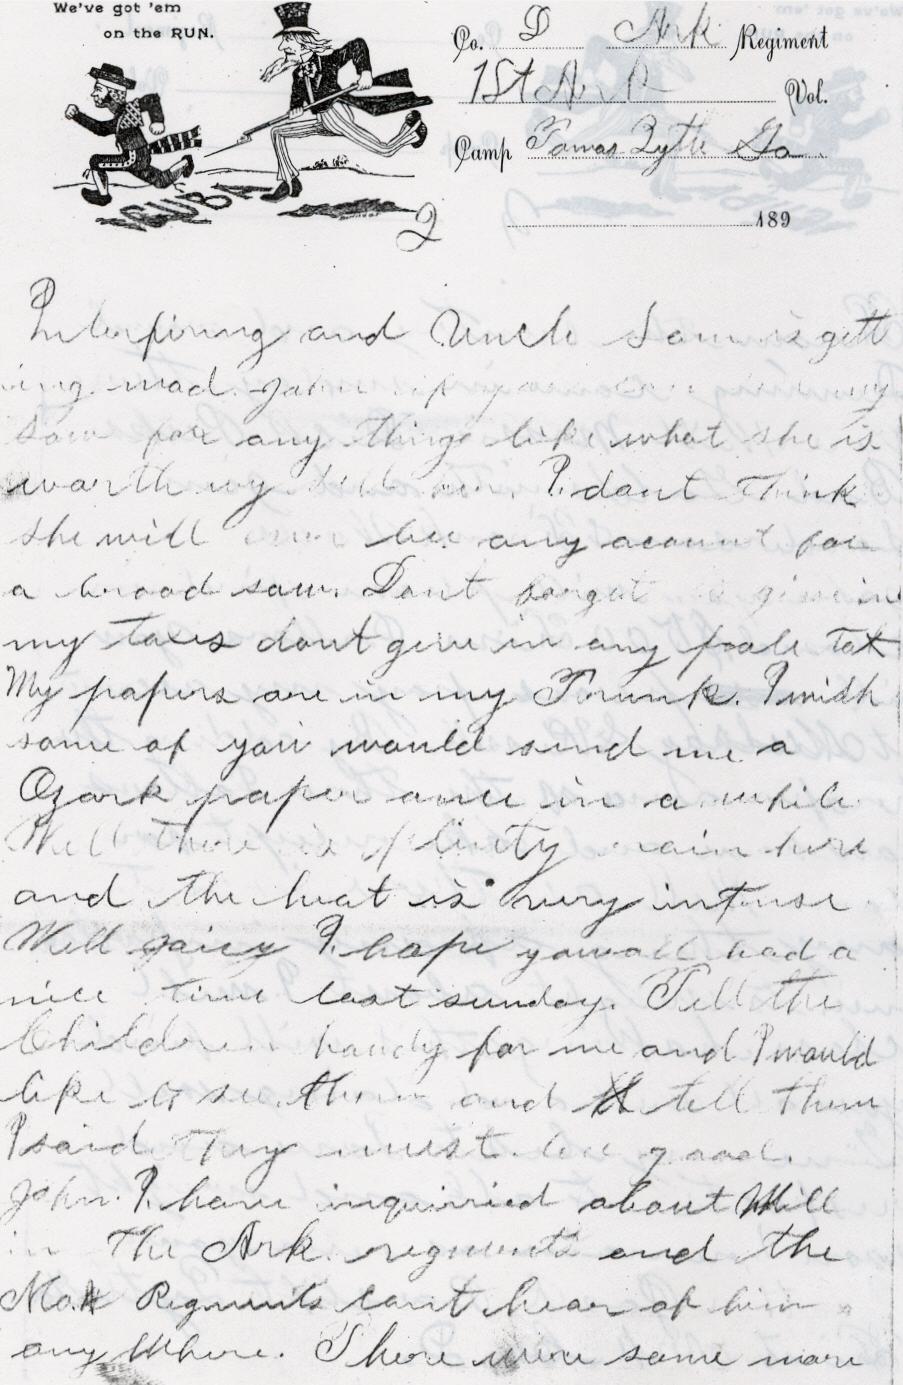 We've got 'em
on the RUN.
Co. D Ark Regiment
1st A. Vol.
Camp Tomas Lytle Ga
CUBA
2
189
Interfiring and Uncle Sam is gett
ing mad. John if you can my
sow for any thing like what she is
warth my sell her. I dont Think
she will ever bee any acount for
a brood sow. Dont forget to give in
my taxes dont give in any poale tax
My papers are in my Trunk. I wish
some of you would send me a
Ozark paper once in a while
Well There is plinty rain here
and the heat is very intense
Well I hope you all had a
nice time last sunday. Tell the
Children howdy for me and I would
like to see them and tell them
I said They must bee good.
John. I have inquiried about Will
in The Ark. regments and the
Mo Regments cant hear of him
any Where. There were some more